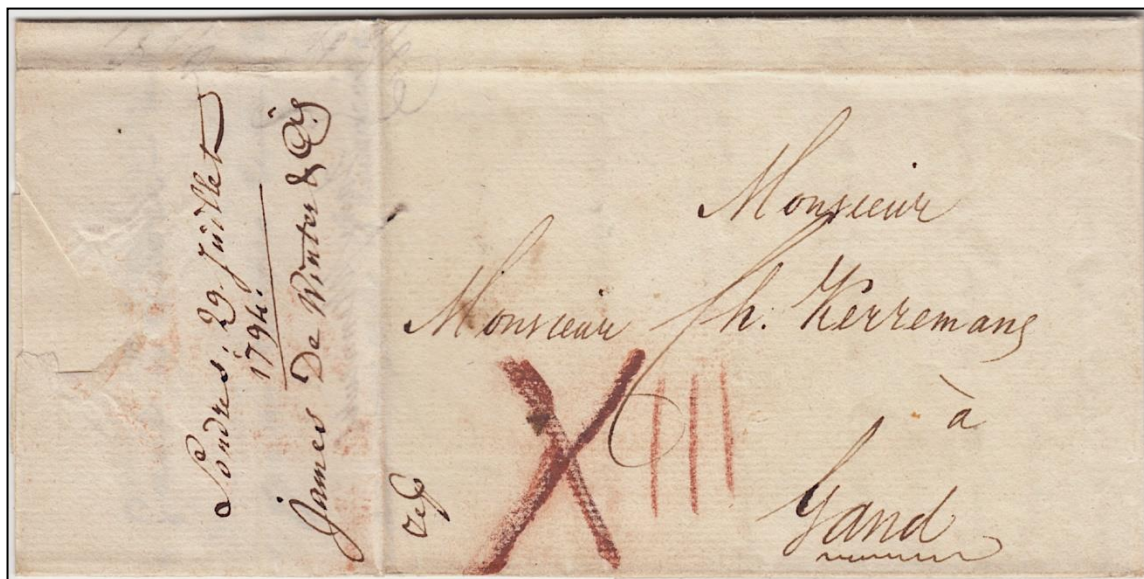 Londres, 29. Juillet
1794.
James De Winter & Co
Monsieur
Monsieur Ch. Kerremans
à
Gand
XIII